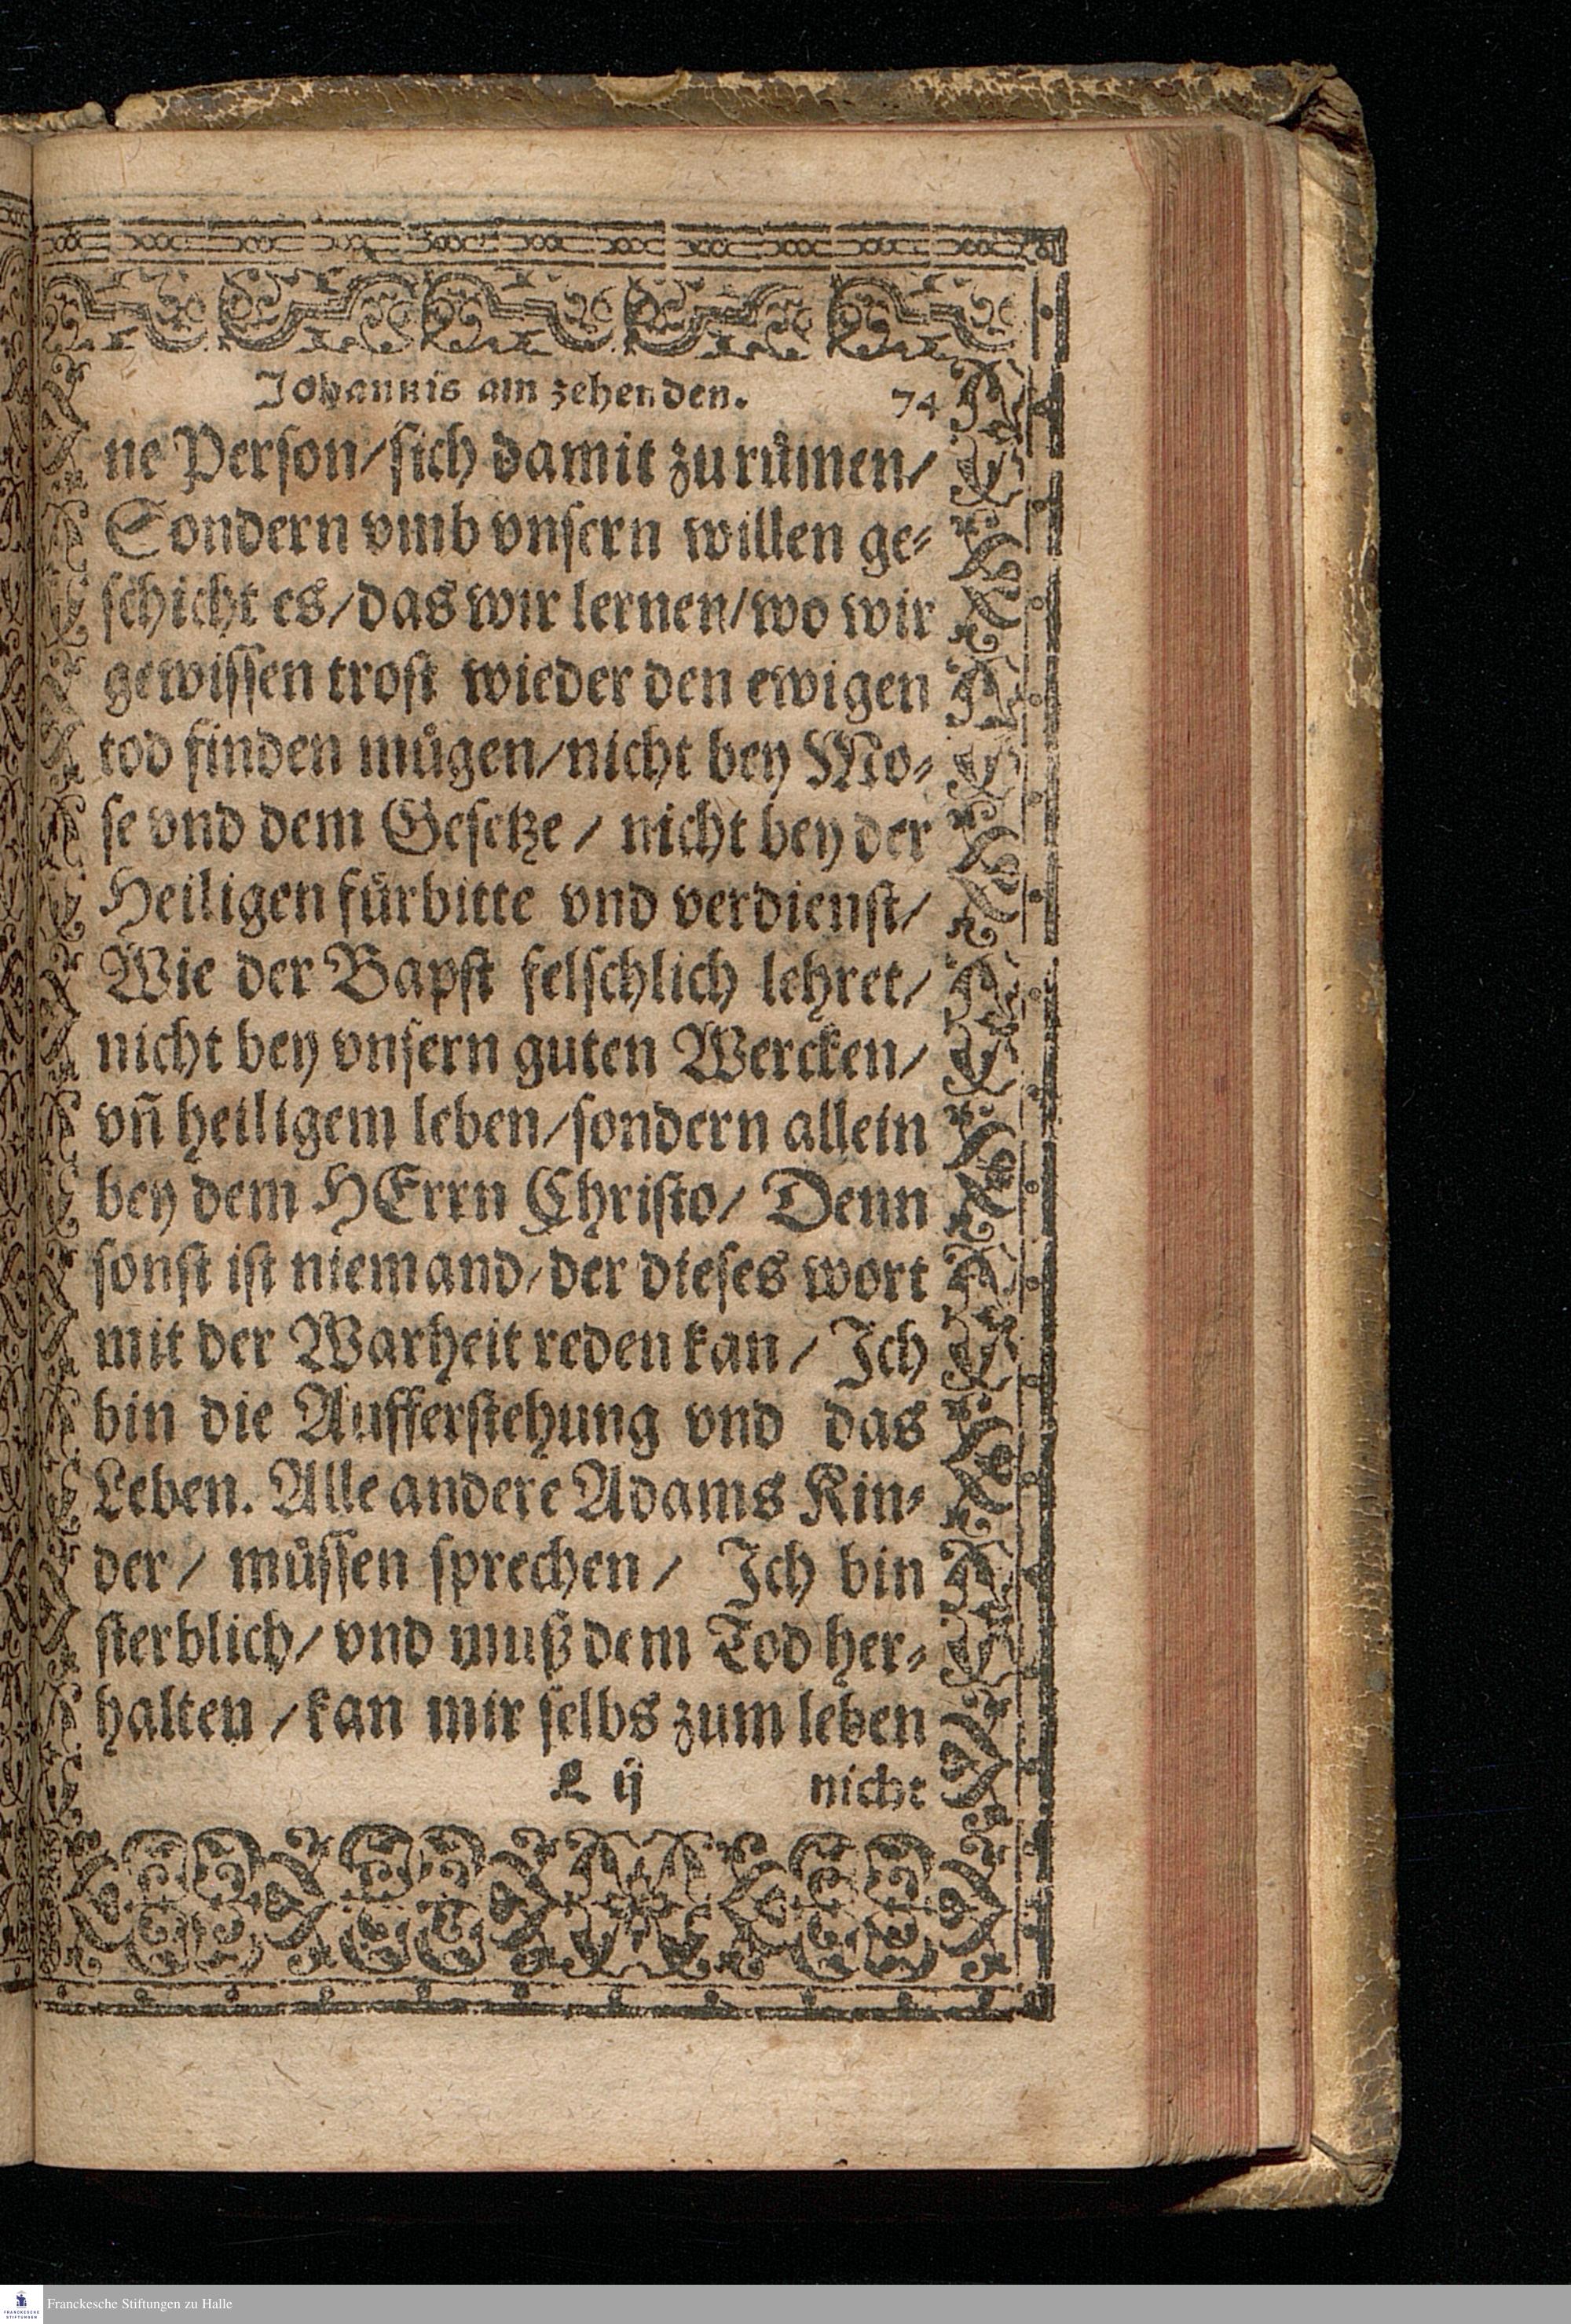 Johannis am zehenden. 74
ne Person/sich damit zu ruͤmen/
Sondern vmb vnsern willen ge⸗
schicht es/das wir lernen/wo wir
gewissen trost wieder den ewigen
tod finden muͤgen/nicht bey Mo⸗
se vnd dem Gesetze / nicht bey der
Heiligen fuͤrbitte vnd verdienst/
Wie der Bapst felschlich lehret/
nicht bey vnsern guten Wercken/
vñ heiligem leben/sondern allein
bey dem HErrn Christo/ Denn
sonst ist niemand/der dieses wort
mit der Warheit reden kan / Ich
bin die Aufferstehung vnd das
Leben. Alle andere Adams Kin⸗
der / muͤssen sprechen / Ich bin
sterblich/ vnd muß dem Tod her⸗
halten /kan mir selbs zum leben
L ij nicht
FRANCKESCHE
STIFTUNGEN
Franckesche Stiftungen zu Halle